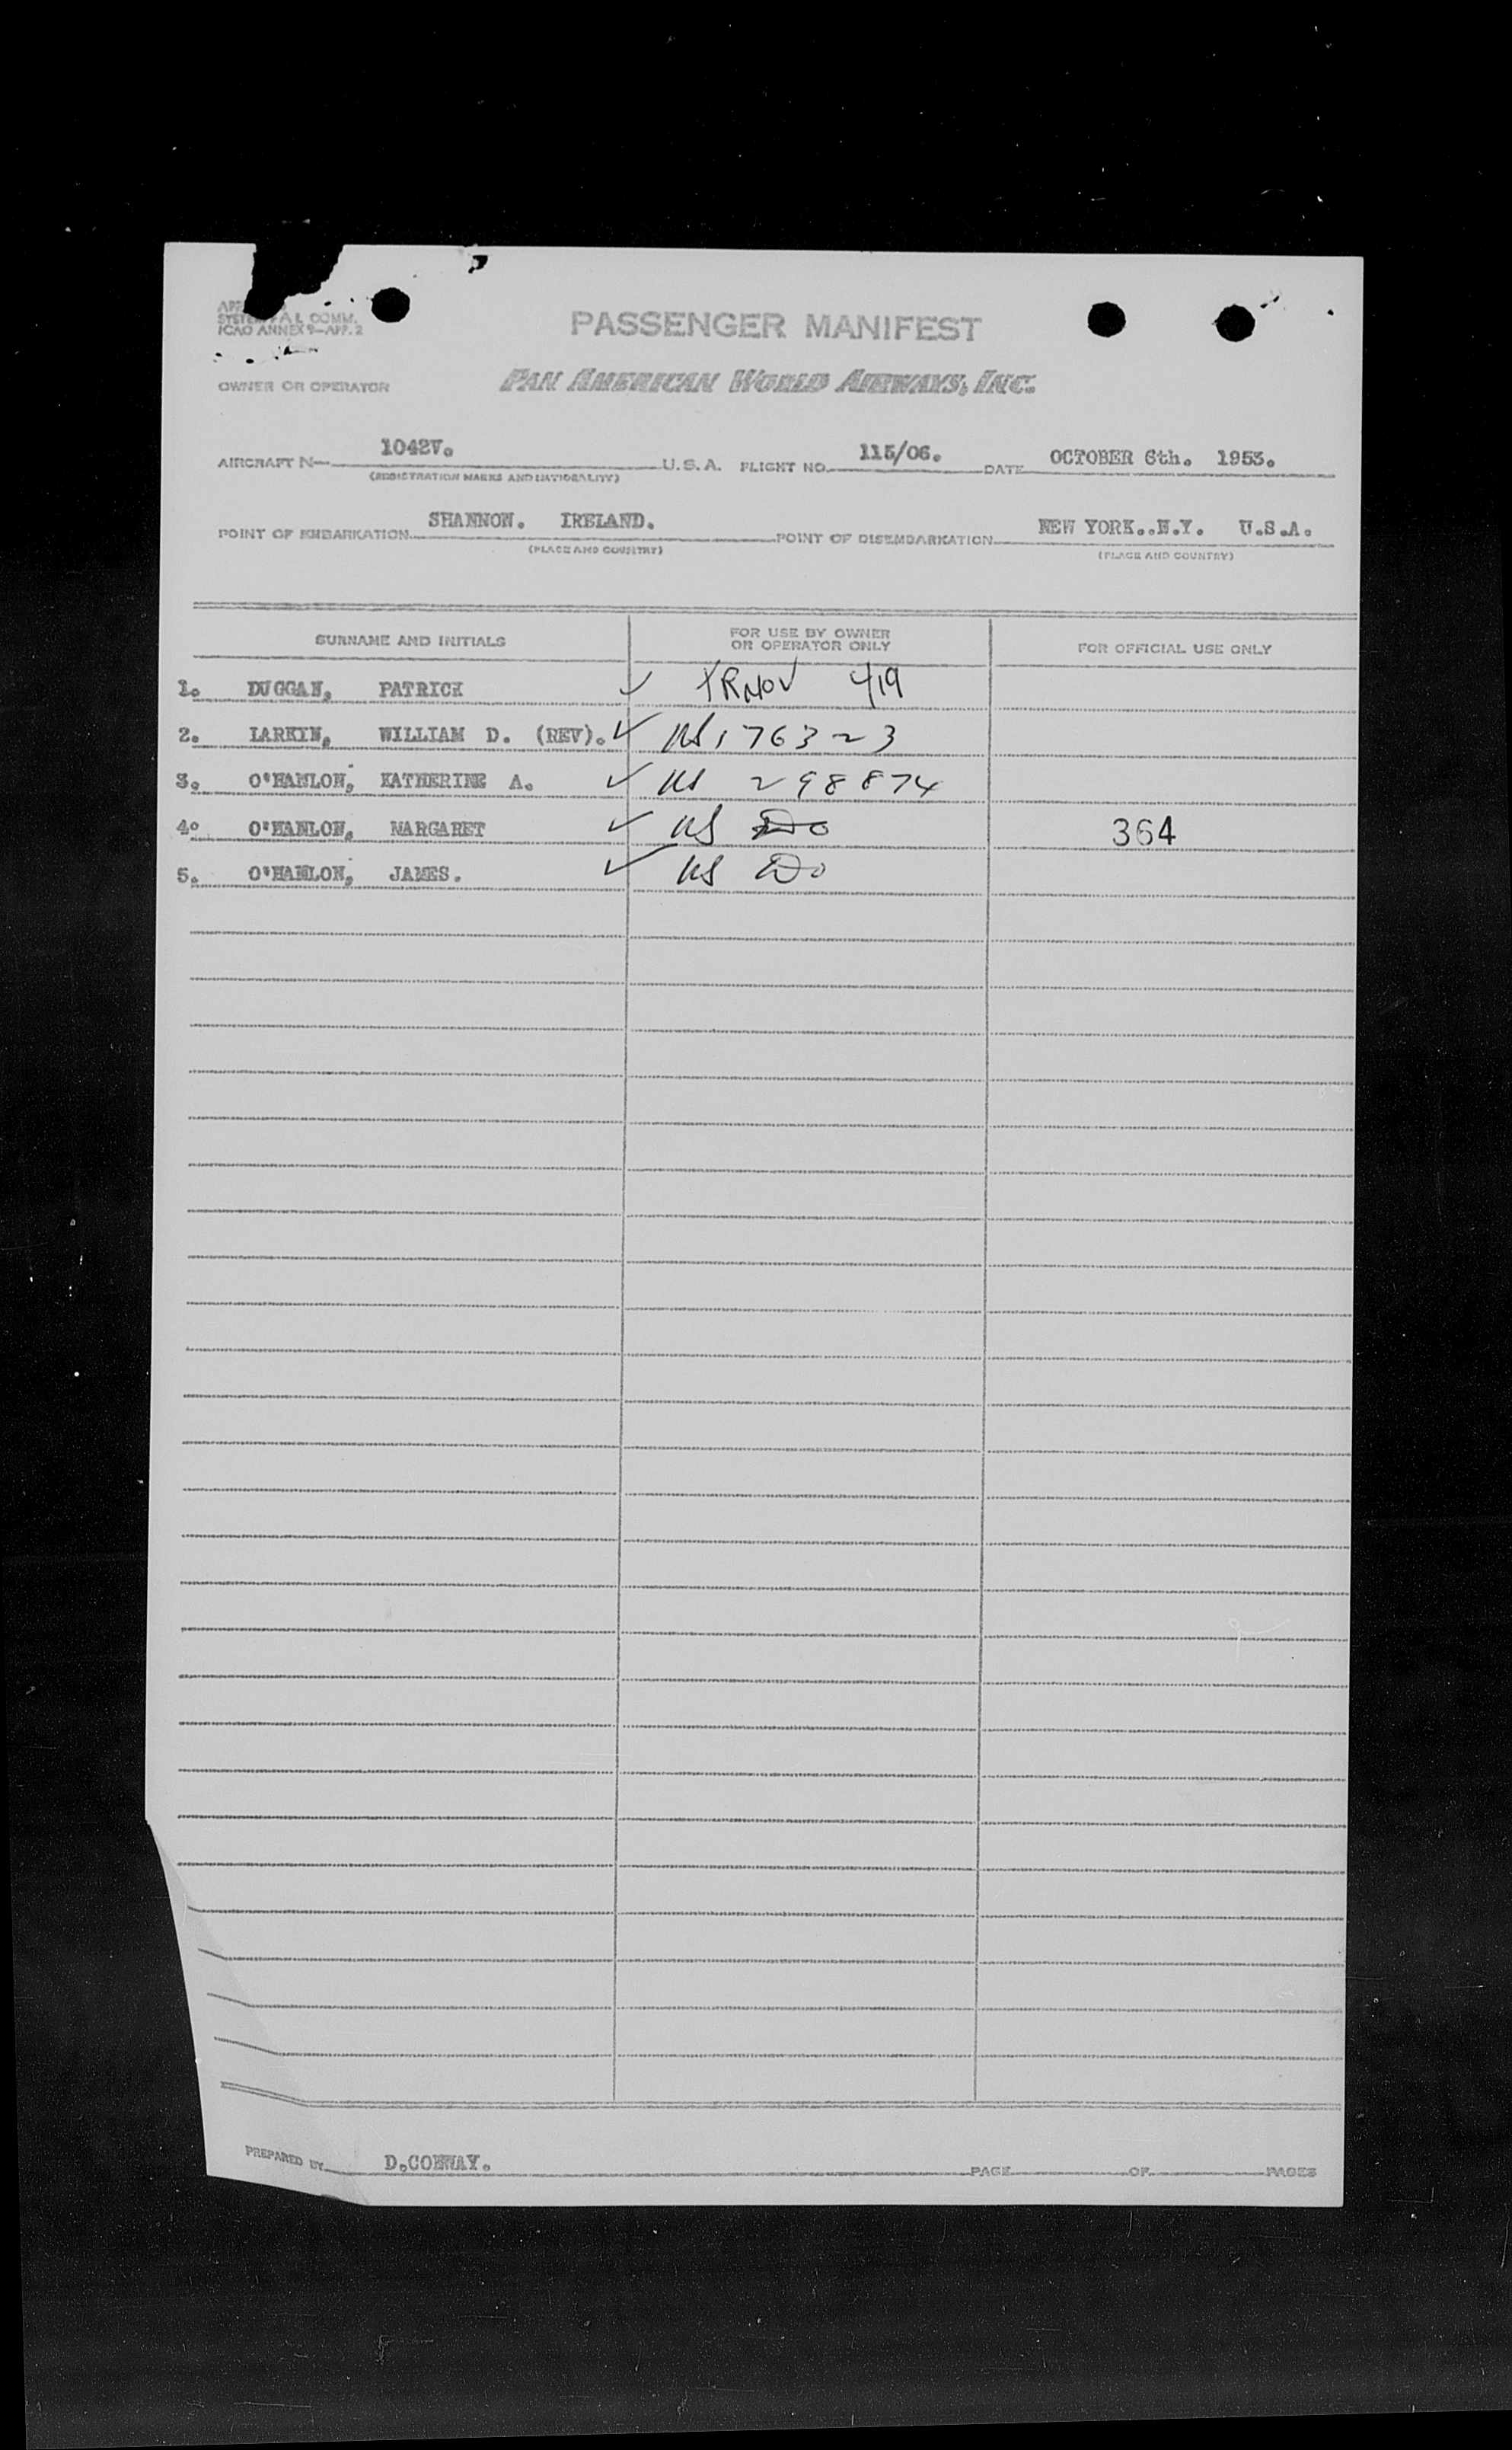 PASSENGER MANIFEST
ICAO ANNEX 9—APP. 2
OWNER OR OPERATOR PAN AMERICAN WORLD AIRWAYS, INC.
AIRCRAFT N— 1042V. U.S.A. FLIGHT NO. 115/06. DATE OCTOBER 6th. 1953.
(REGISTRATION MARKS AND NATIONALITY)
POINT OF EMBARKATION SHANNON. IRELAND. POINT OF DISEMBARKATION NEW YORK..N.Y. U.S.A.
(PLACE AND COUNTRY) (PLACE AND COUNTRY)
SURNAME AND INITIALS FOR USE BY OWNER OR OPERATOR ONLY FOR OFFICIAL USE ONLY
1. DUGGAN, PATRICK ✓ 419
2. LARKIN, WILLIAM D. (REV). ✓ US 176323
3. O'HANLON, KATHERINE A. ✓ US 298874
4. O'HANLON, MARGARET ✓ US Do 364
5. O'HANLON, JAMES. ✓ US Do
PREPARED BY D.CONWAY. PAGE OF PAGES